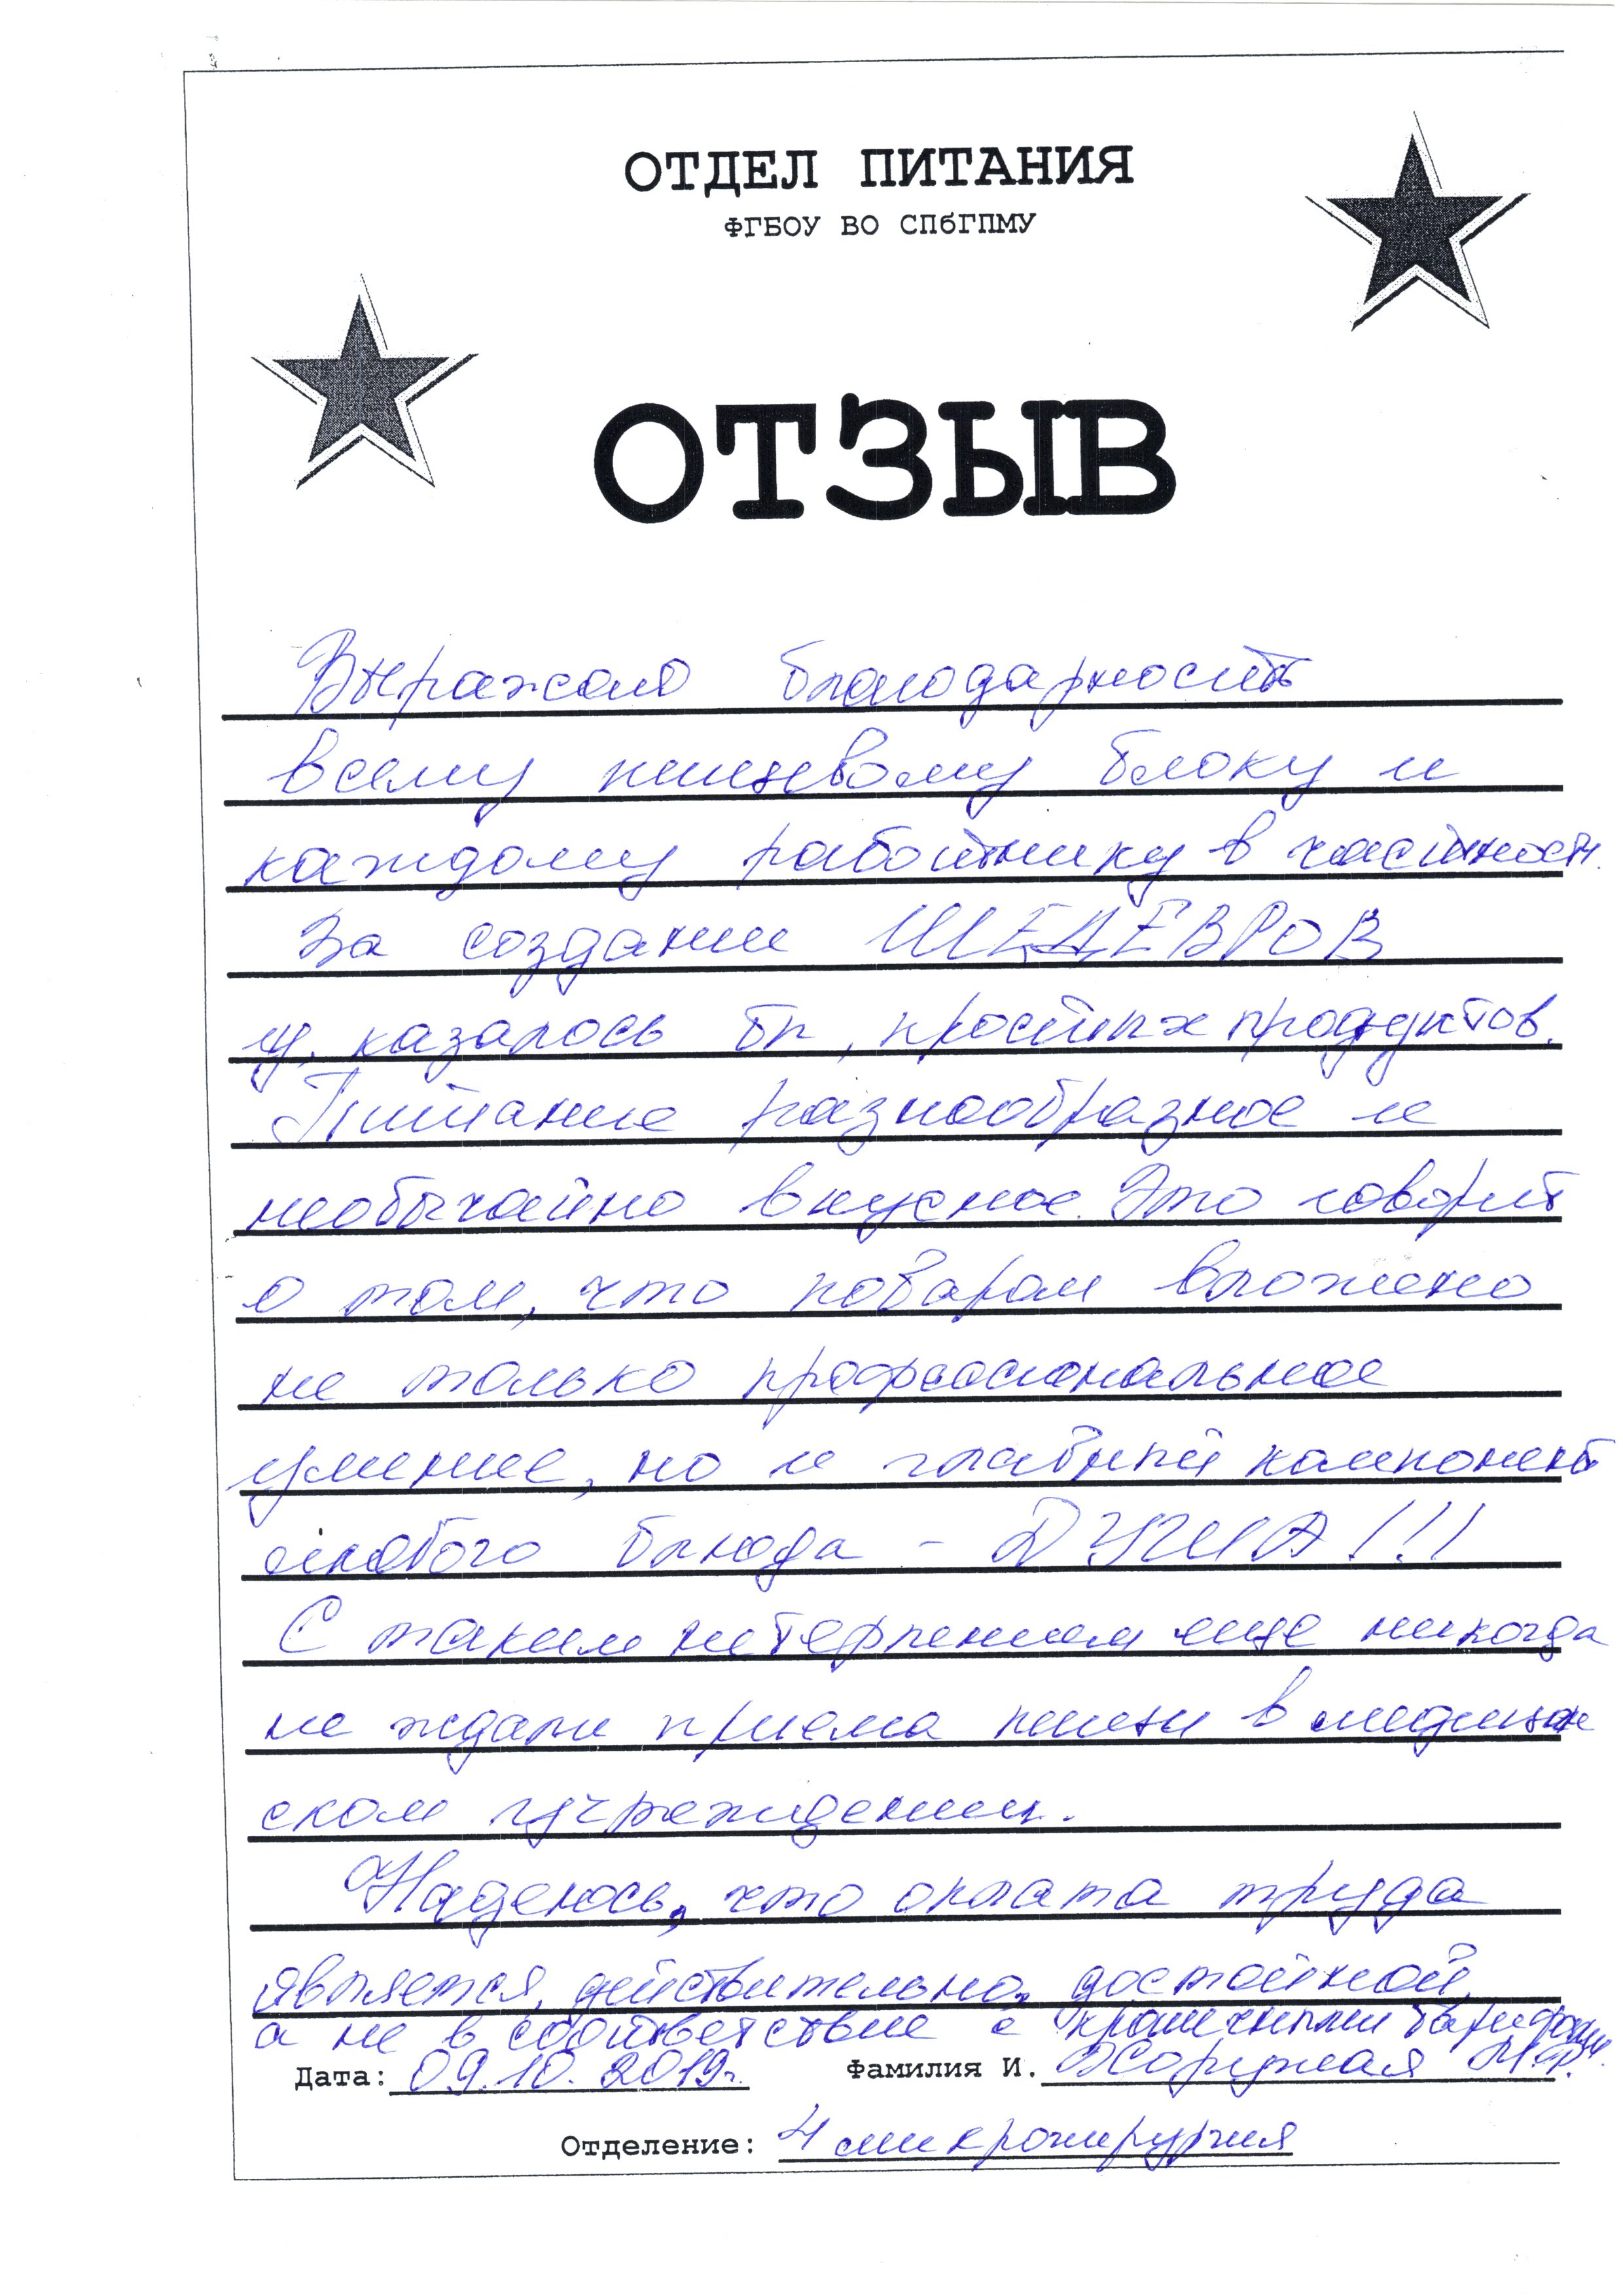 ОТДЕЛ ПИТАНИЯ
ФГБОУ ВО СПбГПМУ
ОТЗЫВ
Выражаю благодарность
всему пищевому блоку и
каждому работнику в частност.
За создании ШЕДЕВРОВ
из, казалось бы, простых продуктов.
Питание разнообразное и
необычайно вкусное. Это говорит
о том, что поварам вложено
не только профессиональное
умение, но и главный компонент
любого блюда - ДУША!!!
С таким нетерпением еще никогда
не ждали приема пищи в медицин
ском учреждении.
Надеюсь, что оплата труда
является, действительно, достойной,
а не в соответствие с крошечными тарифами.
Дата: 09.10.2019г. Фамилия И.
Отделение: 4 микрохирургия